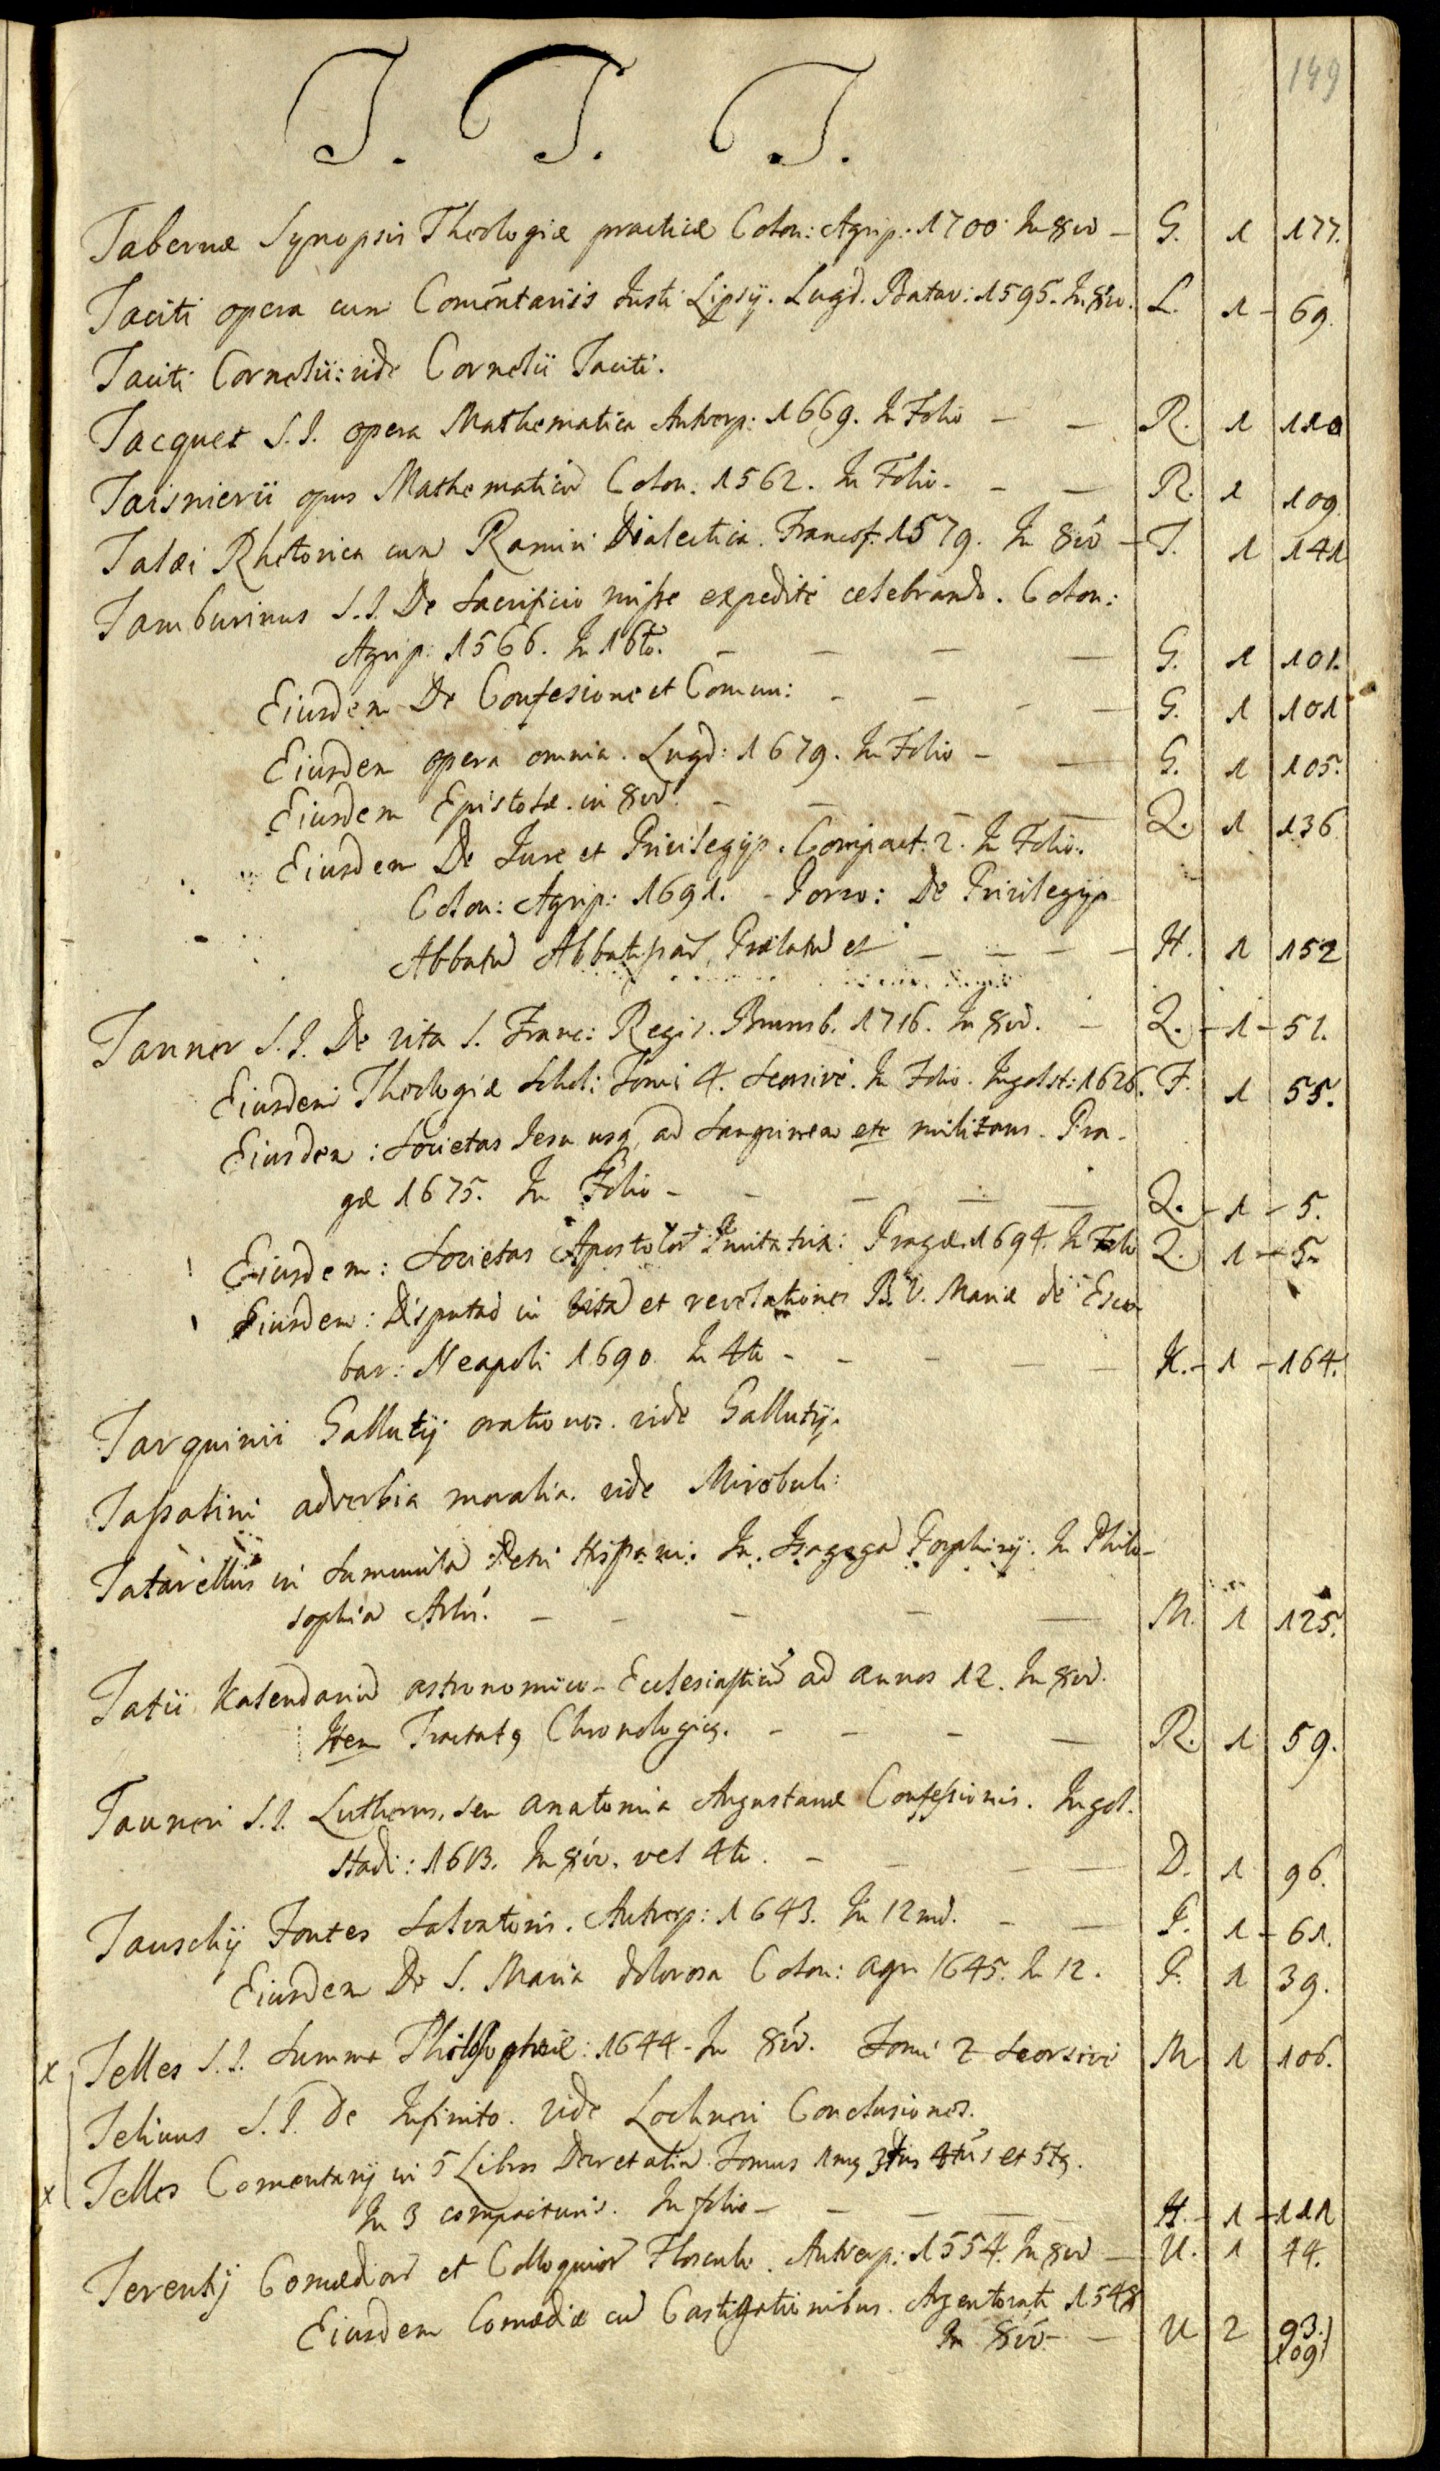 149
T. T. T.
Tabernæ Synopsis Theologiæ practicæ Colon: Agrip: 1700 In 8vo – G. 1 177.
Taciti opera cum Comentariis Justi Lipsij. Lugd. Batav: 1595. In 8vo. L. 1 – 69.
Taciti Cornelii: vide Cornelii Taciti.
Tacquet S.J. opera Mathematica Antverp: 1669. In Folio – – R. 1 110
Taisnierii opus Mathematicū Colon. 1562. In Folio. – – R. 1 109.
Talæi Rhetorica cum Rami Dialectica. Francof. 1579. In 8vo – T. 1 141
Tamburinus S.J. De Sacrificio missæ expedite celebrando. Colon:
Agrip: 1566. In 16to. – – – – G. 1 101.
Eiusdem De Confesione et Comun: – – – – G. 1 101
Eiusdem opera omnia. Lugd: 1679. In Folio – – G. 1 105.
Eiusdem Epistolæ. in 8vo. – – – – Q. 1 136
Eiusdem De Jure et Privilegijs. Compact. 2. In Folio.
Colon: Agrip: 1691. – Porro: De Privilegijs
Abbatū Abbatissarū, Prælatū et – – – – H. 1 152
Tanner S.J. De vita S. Franc: Regis. Brunsb. 1716. In 8vo. – Q. – 1 – 51.
Eiusdem Theologiæ Schol: Tomi 4. Seorsive. In Folio. Ingolst: 1626. F. 1 55.
Eiusdem: Societas Jesu usq ad Sanguinem etc militans. Pra-
gæ 1675. In Folio – – – – – Q. – 1 – 5.
Eiusdem: Societas Apostolor Imitatrix: Pragæ. 1694. In Folio Q. 1 – 5.
Eiusdem: Disputaō in vitā et revelationes B.V. Mariæ de Esco-
bar: Neapoli 1690 In 4to – – – – – K. – 1 – 164.
Tarquinii Gallutij orationes. vide Gallutij.
Tassatini adverbia moralia. vide Mirobuli:
Tatarellus in Summulā Petri Hispani. In Isagogā Porphirij. In Philo-
sophiā Arist. – – – – – M. 1 125.
Tatii Kalendariū astronomico-Eclesiasticū ad annos 12. In 8vo.
Item Tractatq Chronologicq. – – – – R. 1 59.
Tauneri S.J. Lutherus, seu anatomia Augustanæ Confessionis. Ingol-
stadi: 1613. In 8vo. vel 4to. – – – – D. 1 96.
Tauschij Fontes Salvatoris. Antverp: 1643. In 12mo. – – P. 1 – 61.
Eiusdem De S. Maria dolorosa Colon: agr 1645. In 12. P. 1 39.
x Telles S.J. Summa Philosophiæ: 1644 – In 8vo. Tomi 2 Seorsive M 1 106.
Telinus S.J. De Infinito. vide Lochneri Conclusiones.
x Telles Comentarij in 5 Libros Decretaliū. Tomus 1mq 3tius 4tus et 5tq.
In 3 compacturis. In folio – – – – – H. – 1 – 111
Terentij Comædiarū et Colloquior Flosculi. Antverp: 1554. In 8vo – U. 1 44.
Eiusdem Comædiæ cū Castigationibus. Argentorati 1548
In 8vo – – U 2 93.
109